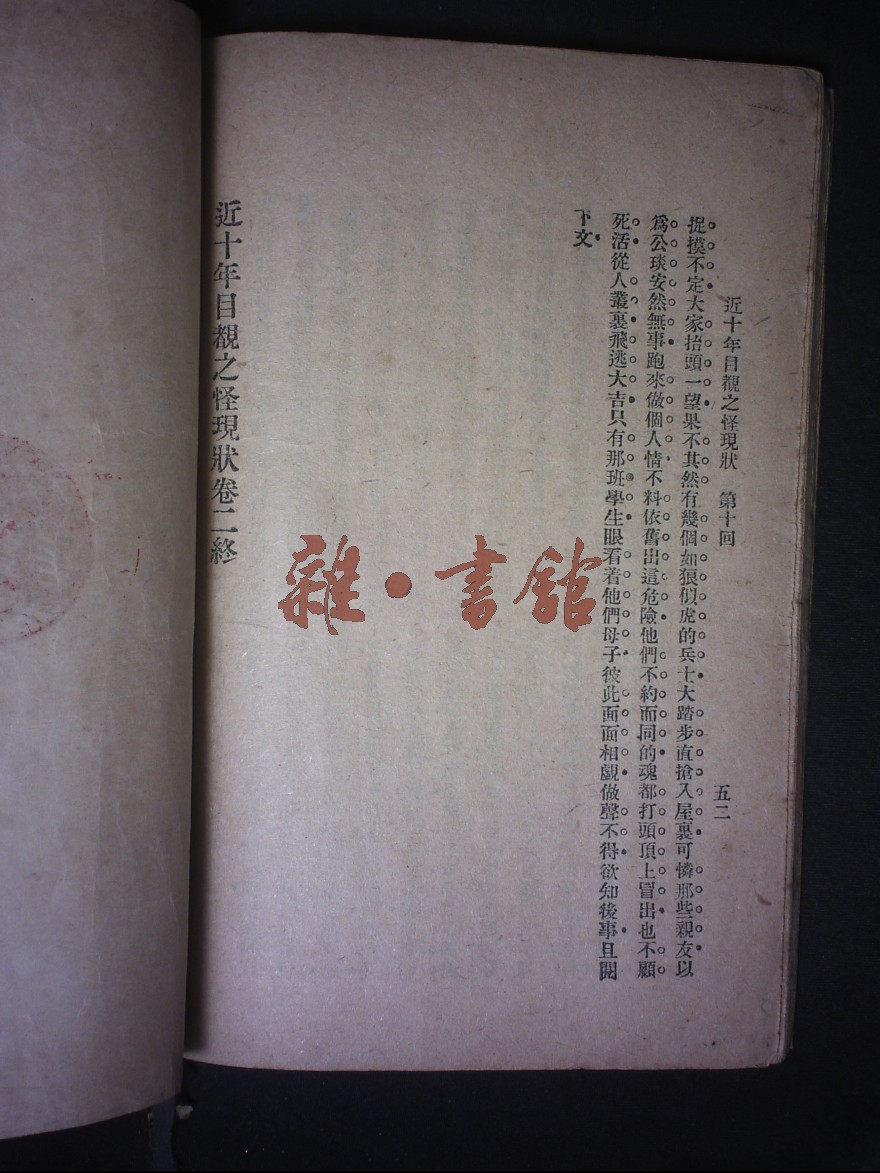 近十年目覩之怪現狀 第十回 五二
捉摸不定大家抬頭一望果不其然有幾個如狼似虎的兵士大踏步直搶入屋裏可憐那些親友以
爲公琰安然無事跑來做個人情不料依舊出這危險他們不約而同的魂都打頭頂上冒出也不顧
死活從人叢裏飛逃大吉只有那班學生眼看着他們母子彼此面面相覷做聲不得欲知後事且閱
下文
近十年目覩之怪現狀卷二終
雜·書館